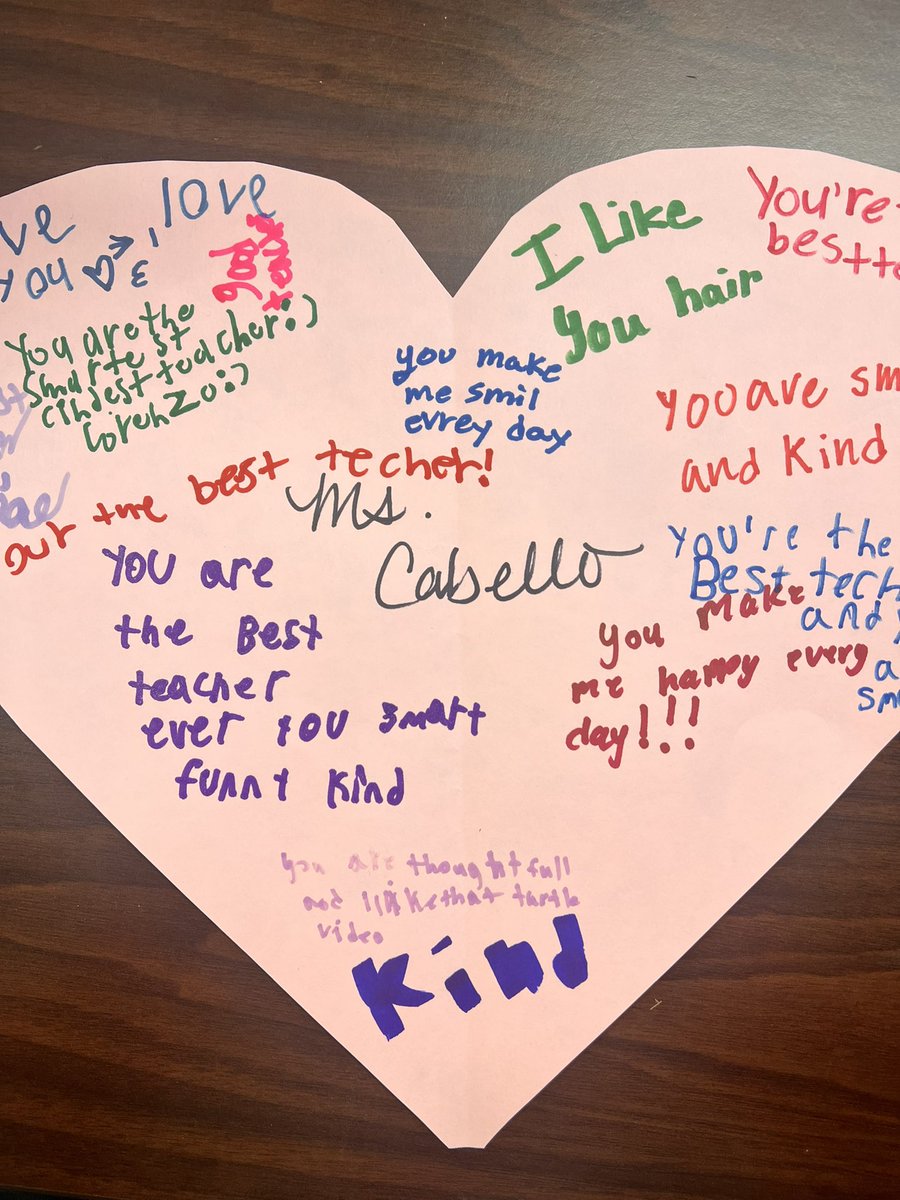 ve
you
love
You are the
smartest
cindest teacher:)
Lorenzo:)
I Like
You hair
You're
best
you make
me smil
evrey day
best techer!
Ms.
Cabello
You are
the Best
teacher
ever You smart
funny Kind
and Kind
You're the
Best tech
and
you make
me happy every
day!!!
you are thoughtfull
and that turtle
video
Kind